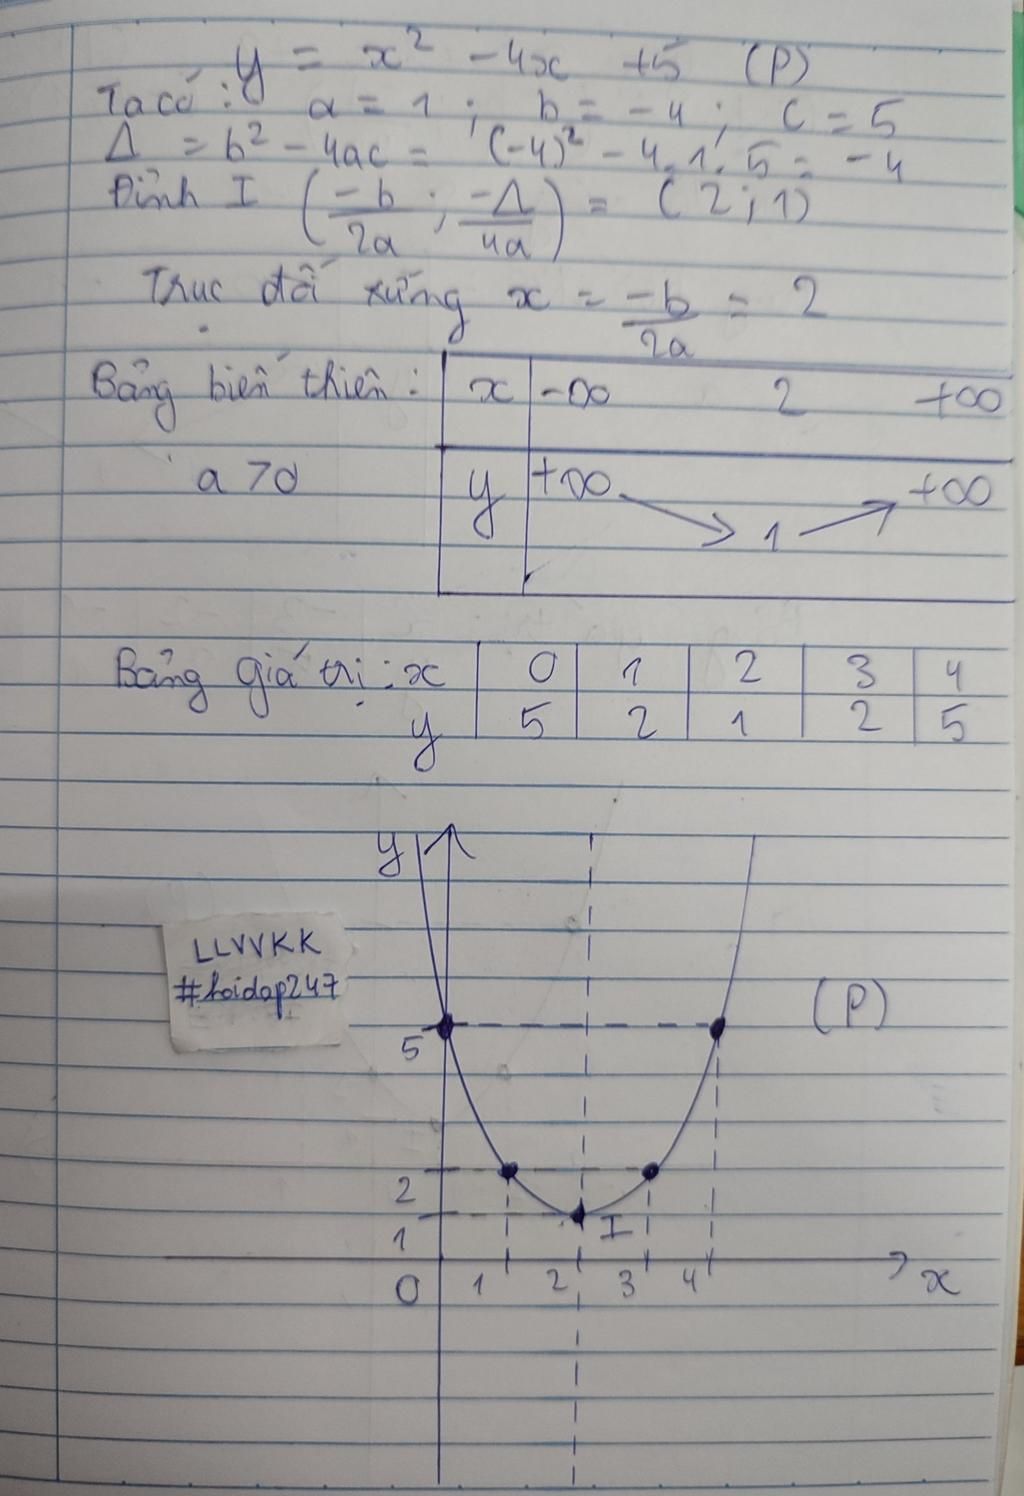 y = x² - 4x + 5 (P)
Ta có: a = 1; b = -4; c = 5
Δ = b² - 4ac = (-4)² - 4.1.5 = -4
Đỉnh I (-b/2a ; -Δ/4a) = (2;1)
Trục đối xứng x = -b/2a = 2
Bảng biến thiên: x -∞ 2 +∞
a > 0 y +∞ 1 +∞
Bảng giá trị: x 0 1 2 3 4
y 5 2 1 2 5
y
LLVVKK
#hoidap247
(P)
5
2
I
1
0 1 2 3 4 x